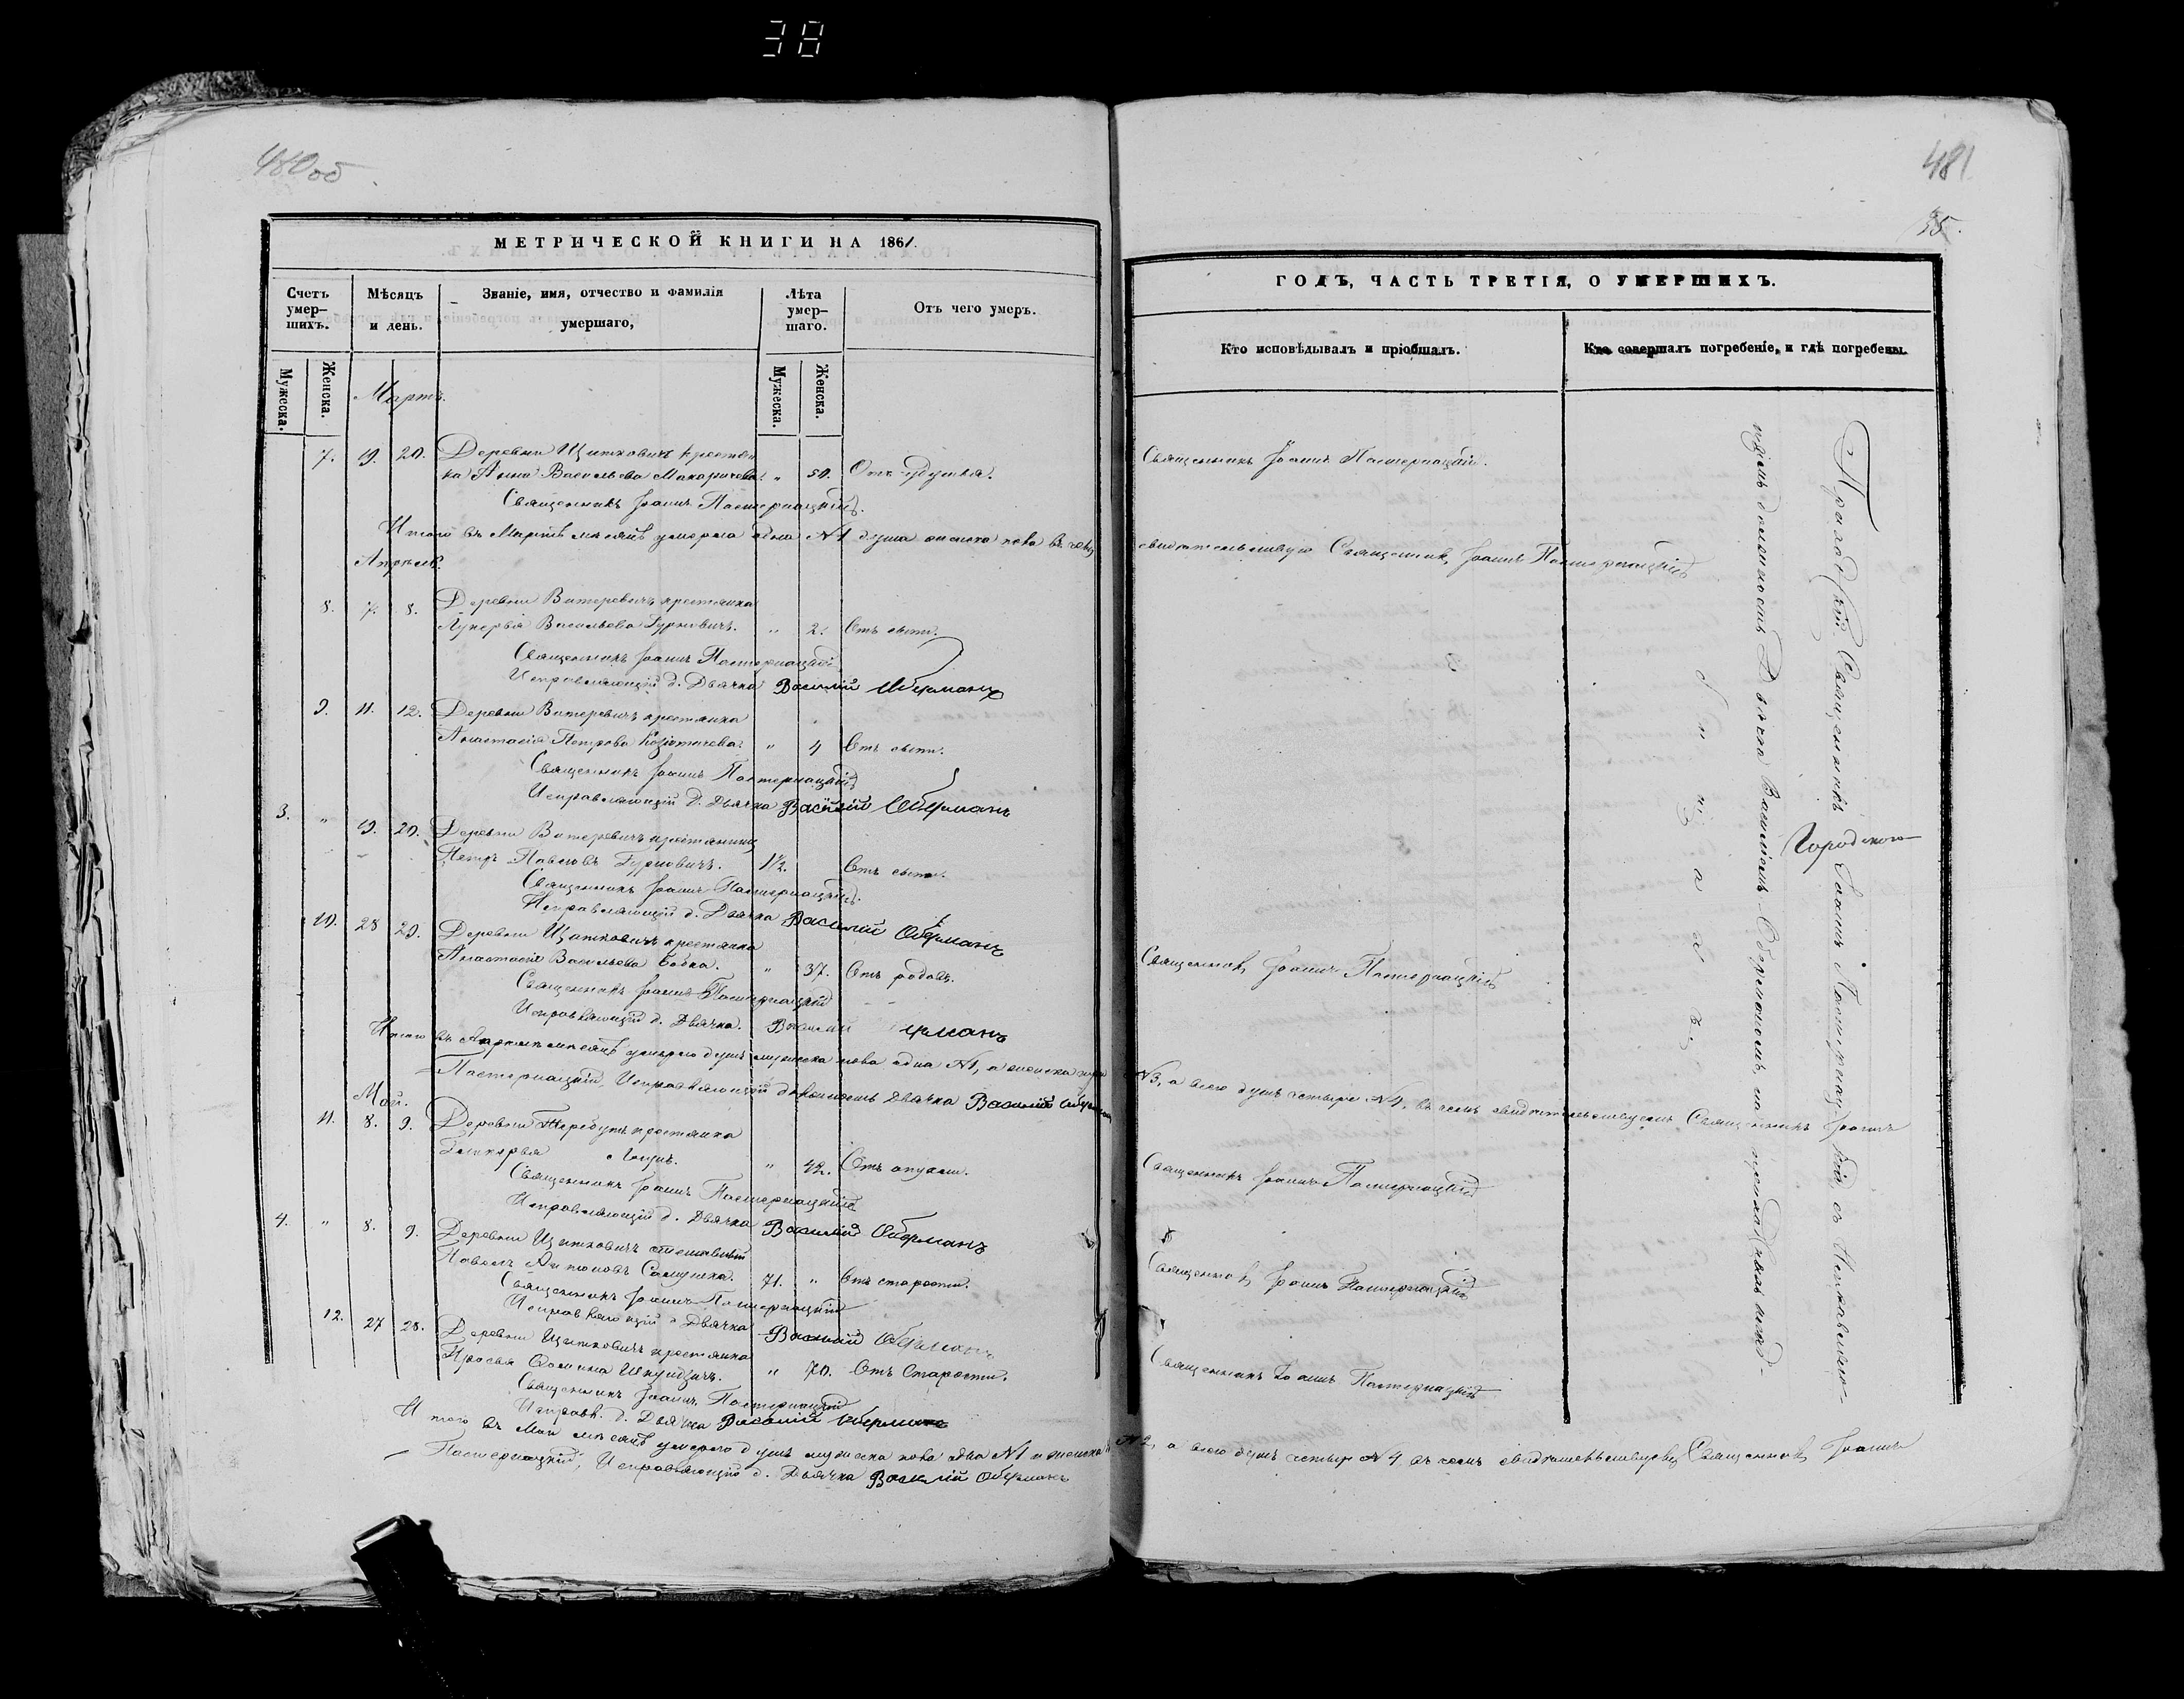 38
480об
МЕТРИЧЕСКОЙ КНИГИ НА 1861.
Счетъ умер–шихъ.
Мѣсяцъ и день.
Званіе, имя, отчество и фамилія умершаго,
Лѣта умер–шаго.
Отъ чего умеръ.
Мужеска.
Женска.
Мужеска.
Женска.
Мартъ.
7. 19. 20. Деревни Щитковичъ крестьян
ка Анна Васильева Макаричева. „ 50. Отъ удушья.
Священникъ Іоаннъ Пастернацкій.
Итого въ Мартѣ мѣсяцѣ умерла одна №1 душа женска пола въ чемъ
Апрѣль.
8. 7. 8. Деревни Витеревичъ крестьянка
Лукерья Васильева Гурновичъ. „ 2. Отъ сыпи.
Священникъ Іоаннъ Пастернацкій
Исправляющій д. Дьячка Василій Оберманъ
9. 11. 12. Деревни Витеревичъ крестьянка
Анастасія Петрова „ 4 Отъ сыпи.
Священникъ Іоаннъ Пастернацкій
Исправляющій д. Дьячка Василій Оберманъ
3. „ 19. 20. Деревни Витеревичъ крестьянинъ
Петръ Павловъ Гурновичъ. 1½. Отъ сыпи.
Священникъ Іоаннъ Пастернацкій.
Исправляющій д. Дьячка Василій Оберманъ
10. 28 29. Деревни Щитковичъ крестьянка
Анастасія Васильева Бобка. „ 37. Отъ родовъ.
Священникъ Іоаннъ Пастернацкій
Исправляющій д. Дьячка. Василій
Итого въ Апрѣлѣ мѣсяцѣ умерло душъ мужеска пола одна №1, а женска три
Пастернацкій, Исправляющій должность Дьячка Василій Оберманъ
Май.
11. 8. 9. Деревни Теребутъ крестьянка
„ 42. Отъ опухли.
Священникъ Іоаннъ Пастернацкій
Исправляющій д. Дьячка Василій Оберманъ
4. „ 8. 9. Деревни Щитковичъ отставный
Павелъ Антоновъ 71. „ Отъ старости.
Священникъ Іоаннъ Пастернацкій
Исправляющій д. Дьячка Василій Оберманъ
12. 27 28. Деревни Щитковичъ крестьянка
Просья Фомина Шкундзичъ. „ 70. Отъ Старости.
Священникъ Іоаннъ Пастернацкій
Исправл. д. Дьячка Василій Оберманъ
Итого въ Маѣ мѣсяцѣ умерло душъ мужеска пола одна №1 и женска
Пастернацкій, Исправляющій д. Дьячка Василій Оберманъ
481
35.
ГОДЪ, ЧАСТЬ ТРЕТІЯ, О УМЕРШИХЪ.
Кто исповѣдывалъ и пріобщалъ.
Кто совершалъ погребеніе, и гдѣ погребены.
Священникъ Іоаннъ Пастернацкій.
свидѣтельствую Священникъ Іоаннъ Пастернацкій
Священникъ Іоаннъ Пастернацкій
№3, а всего душъ четыре №4, въ чемъ свидѣтельствуемъ Священникъ Іоаннъ
Священникъ Іоаннъ Пастернацкій
Священникъ Іоаннъ Пастернацкій
Священникъ Іоаннъ Пастернацкій
№2, а всего душъ четыре №4 въ чемъ свидѣтельствуемъ Священникъ Іоаннъ
Приходскій Священникъ Іоаннъ Пастернацкій съ Исправляю–
Городского
щимъ должность Дьячка Василіемъ Оберманомъ на приходскомъ клад–